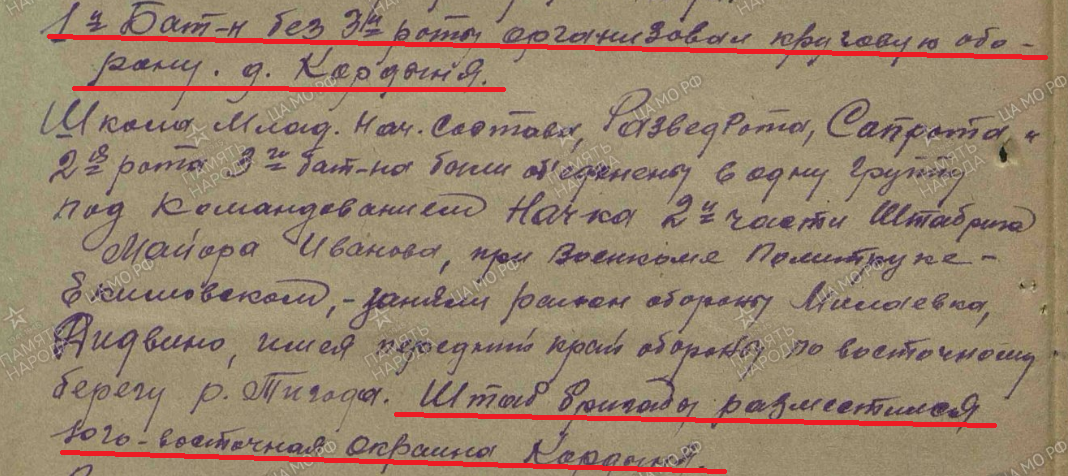 1й Бат-н без 3й роты организовал круговую обо-
рону. д. Кордыня.
Школа Млад. Нач. Состава, РазведРота, Сапрота, и
2я рота 3го бат-на были об'единены в одну группу
под командованием Нач-ка 2й части Штабрига
Майора Иванова, при Военкоме Политруке -
Екимовском, - заняли район обороны Милаевка,
Дидвино, имея передний край обороны по восточному
берегу р. Тигода. Штаб бригады разместился
юго-восточная окраина Кордыня.
ПАМЯТЬ НАРОДА
ЦА МО.РФ